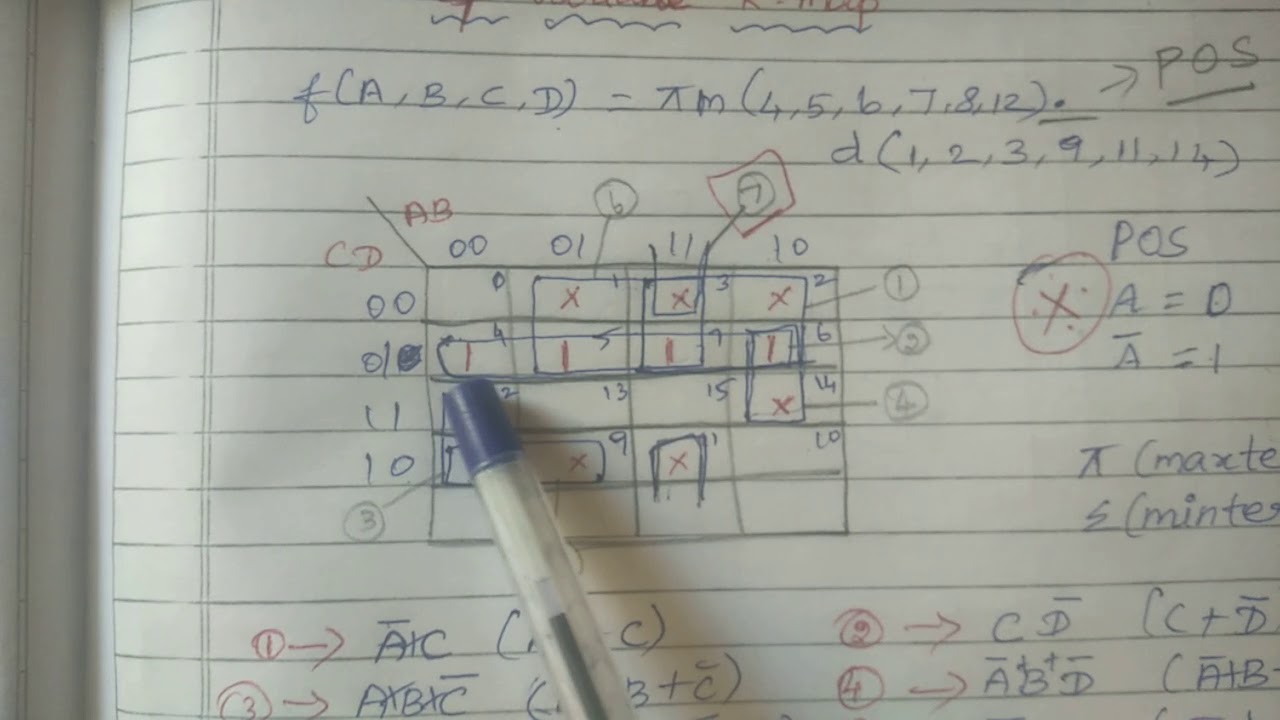 K-map
f(A, B, C, D) = πm(4,5,6,7,8,12). → POS
d(1, 2, 3, 9, 11, 14)
6 7
AB
CD 00 01 11 10
00 0 X 1 X 3 X 2 1
01 1 4 1 5 1 7 1 6 2
11 2 13 15 X 14 4
10 X 9 X 1 10
3
POS
X A = 0
Ā = 1
π (maxte
Σ (minter
① → Ā+C ( C)
② → C D̄ (C + D̄
③ → A+B+C̄ ( B + C̄)
④ → Ā+B+D̄ (Ā+B